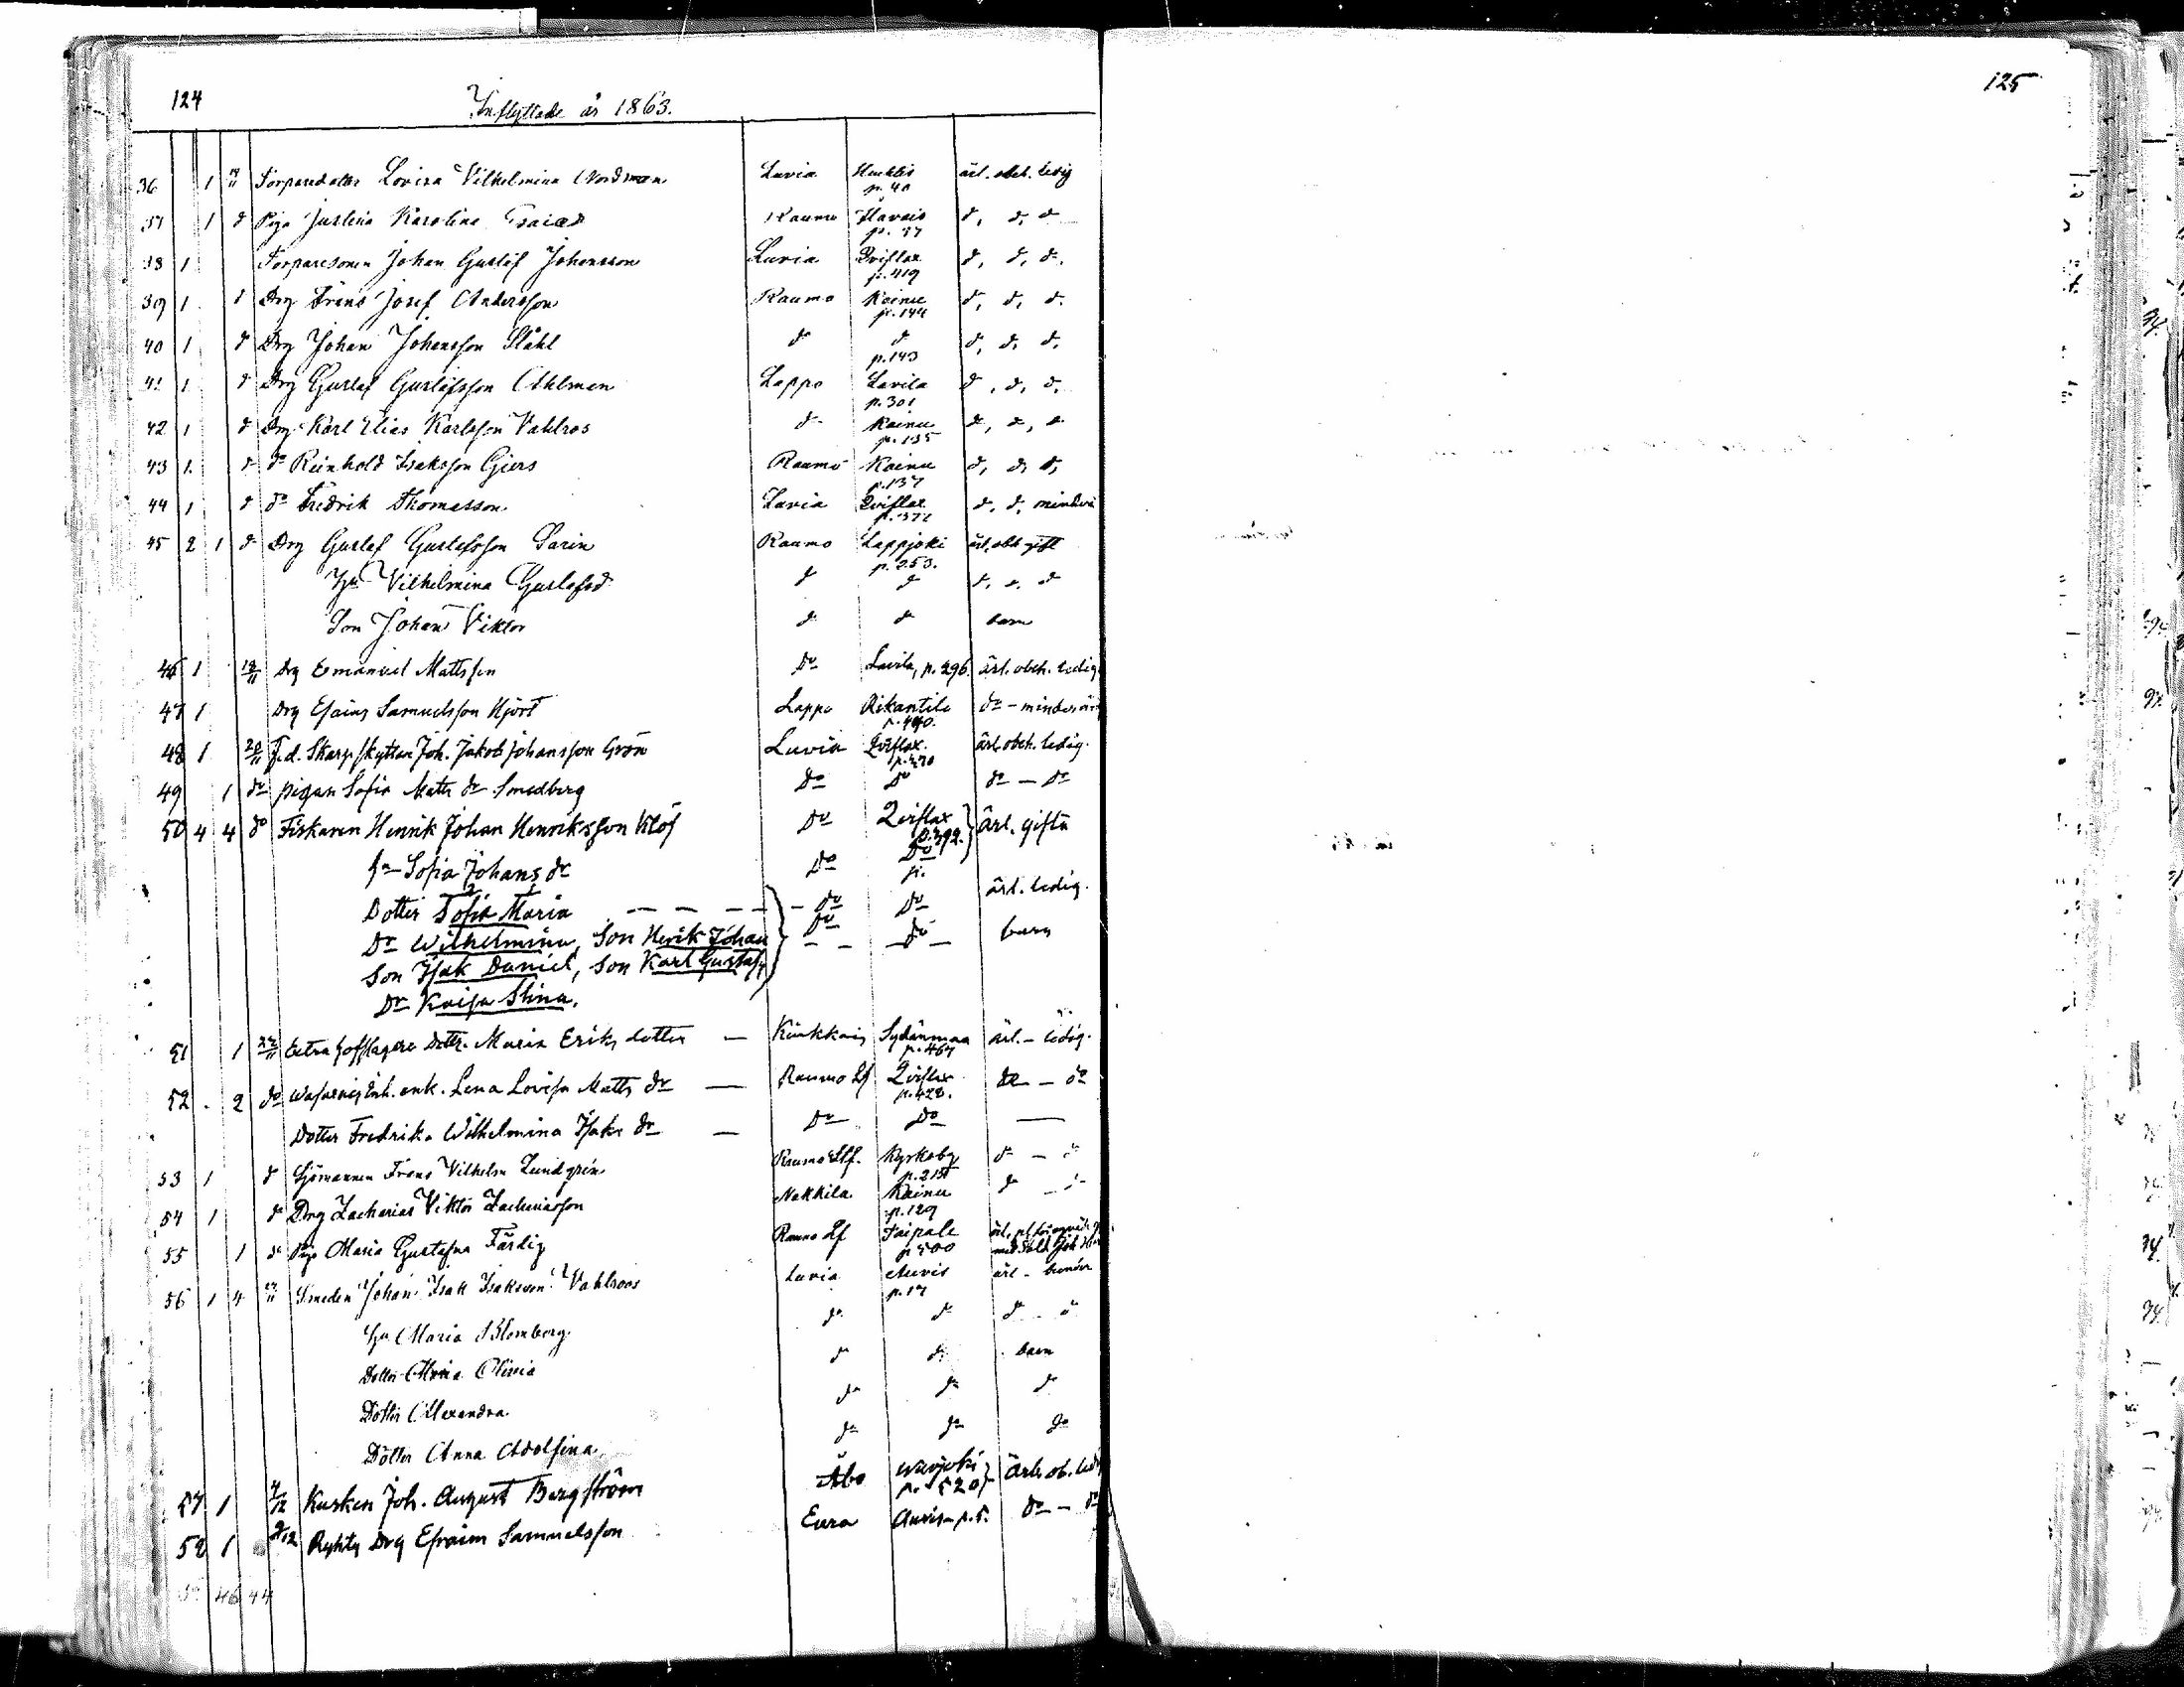 124
Inflyttade år 1863.
125
36 1 Torparedotter Lovisa Vilhelmina Nordman Luvia p. 40 ärl. obeh. ledig
37 1 d Piga Justina Karolina Raumo Havais p. 37 d, d, d
38 1 Torparesonen Johan Gustaf Johansson Luvia Qviflax p. 419 d, d, d.
39 1 d Drg Frans Josef Andersson Raumo Kainu p. 144 d, d, d.
40 1 d Drg Johan Johansson Ståhl d d p. 143 d, d, d.
41 1 d Drg Gustaf Gustafsson Ahlman Lappo Lavila p. 301 d, d, d.
42 1 d Drg Karl Elias Karlsson Vahlros d Kainu p. 135 d, d, d
43 1 d do Reinhold Isaksson Giers Raumo Kainu p. 137 d, d, d,
44 1 d do Fredrik Thomasson Luvia Qviflax p. 372 d, d,
45 2 1 d Drg Gustaf Gustafsson Sarin Raumo Lappjoki p. 253. ärl. obeh gift
Hu Vilhelmina Gustafsd d d d, d, d
Son Johan Viktor d d barn
46 1 Drg Emanuel Mattsson Do Lavila, p. 296. ärl. obeh. ledig.
47 1 Drg Esaias Samuelsson Hjort Lappo Rikantila p. 440. do -
48 1 20/11 F.d. Skarpskytten Joh. Jakob Johansson Grön Luvia Qviflax. ärl. obeh. ledig.
49 1 do pigan Sofia Matts dr Smedberg Do Do do - Do
50 4 4 do Fiskaren Henrik Johan Henriksson Klöf Do Qviflax p. 392. ärl. gifta
Hu Sofia Johans dr Do Do p.
Dotter Sofia Maria - - - - Do Do ärl. ledig.
Dr Wilhelmina, Son Henrik Johan Do - - Do - barn
Son Isak Daniel, Son Karl Gustaf,
Dr Kaisa Stina.
51 1 22/11 Dottr. Maria Eriks dotter - Kiukkais Sydänmaa p. 467 ärl. - ledig.
52 . 2 do Inh. enk. Lena Lovisa Matts dr - Raumo Lf Qviflax p. 428. do - do
Dotter Fredrika Wilhelmina Isaks dr - Do Do -
53 1 d Sjömannen Frans Vilhelm Lundgrén Raumo Lf. Kyrkoby d -
54 1 d Drg Zacharias Viktor Zachariasson Nakkila Kainu p. 129 d -
55 1 d Piga Maria Gustafva Färdig Raumo Lf Taipale p 500
56 1 4 Smeden Johan Isak Isaksson Vahlroos Luvia Auvis p. 17 ärl -
Hu Maria Blomberg. do d d
Dotter Maria Olivia d d, barn
Dotter Alexandra d d d
Dotter Anna Adolfina d d d
57 1 Kusken Joh. August Bergström Åbo p. 520 ärl. ob. ledig
58 1 2/12 Drg Efraim Samuelsson Eura Auvis p. 5. do - do
46 44